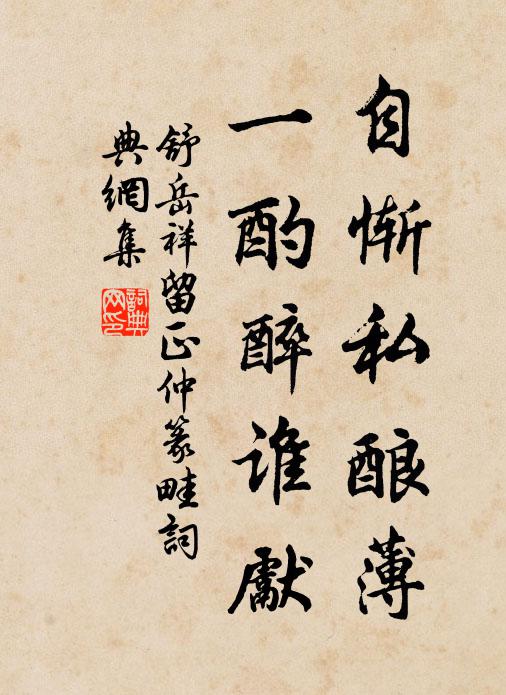 自惭私酿薄
一酌醉谁獻
舒岳祥留正仲篆畦詞
典網集
詞典網印